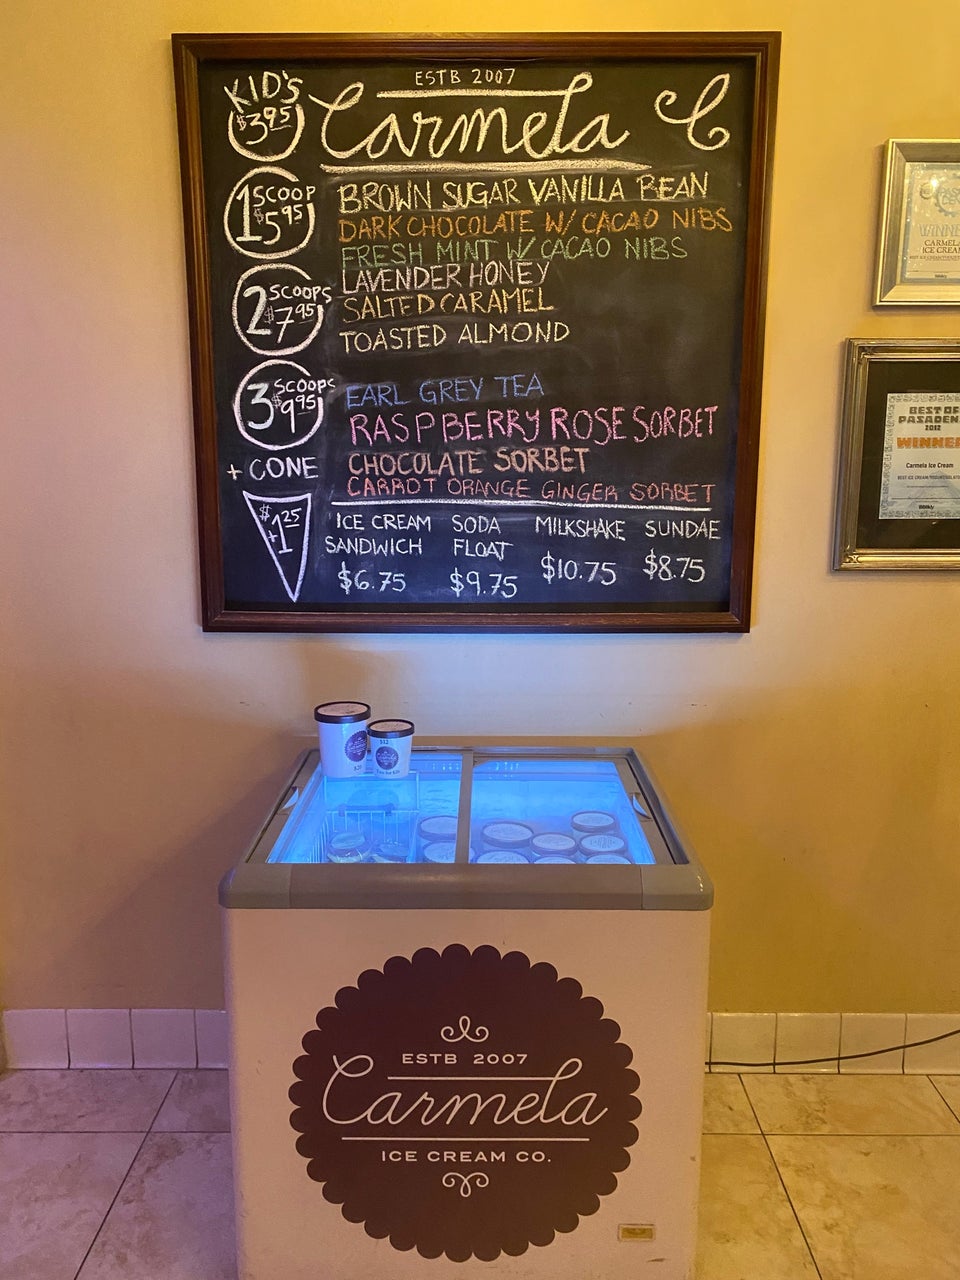 ESTB 2007
Carmela
KID'S
$3.95
1 SCOOP
$5.95
2 SCOOPS
$7.95
3 SCOOPS
$9.95
+ CONE
$+1.25
BROWN SUGAR VANILLA BEAN
DARK CHOCOLATE W/ CACAO NIBS
FRESH MINT W/ CACAO NIBS
LAVENDER HONEY
SALTED CARAMEL
TOASTED ALMOND
EARL GREY TEA
RASPBERRY ROSE SORBET
CHOCOLATE SORBET
CARROT ORANGE GINGER SORBET
ICE CREAM
SANDWICH
$6.75
SODA
FLOAT
$9.75
MILKSHAKE
$10.75
SUNDAE
$8.75
CARMELA
ICE CREAM
BEST OF
PASADENA
2012
WINNER
Carmela Ice Cream
$12
ESTB 2007
Carmela
ICE CREAM CO.